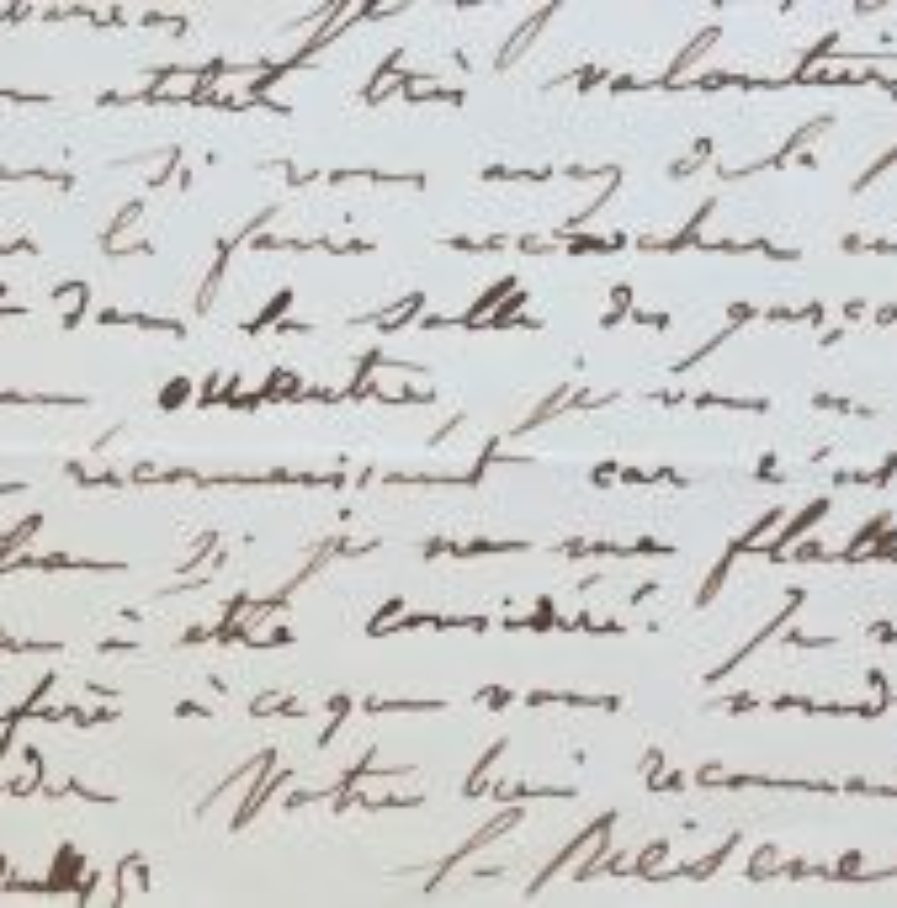 atelier très volontiers
si vous avez de la
le faire accrocher
dans la salle des garço
ou autre, je vous
réconnaissant car c'est
si je ne me flatte
à etre considéré. Je
à ce que vous voud
Votre bien reconnai
L. Riésene